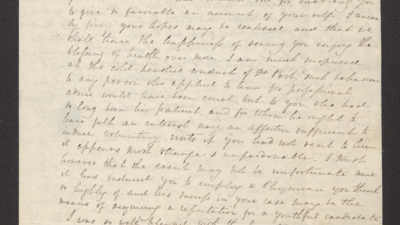 to give so favorable an account of yourself. I sincere
ly pray your hopes may be realized and that we
shall have the happiness of seeing you enjoy the
blessing of health once more. I am much surprised
at the cold hearted conduct of Dr Post. Such behaviour
to any person who applied to him for professional
advice would have been cruel but to you who had
so long been his patient, and for whom he ought to
have felt an interest nay, an affection sufficient to
induce voluntary visits if you had not sent to him
it appears most strange & unpardonable. I trust
however that the event may not be unfortunate since
it has induced you to employ a Physician you think
so highly of and his success in your case may be the
means of acquiring a reputation for a youthful candidate
I was so well pleased with the